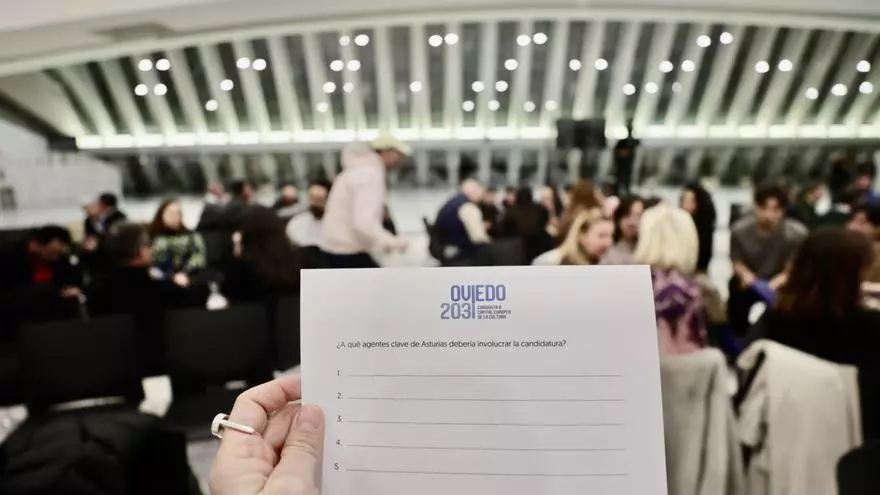 OVIEDO
2031 CANDIDATA A
CAPITAL EUROPEA
DE LA CULTURA
¿A qué agentes clave de Asturias debería involucrar la candidatura?
1.
2.
3.
4.
5.